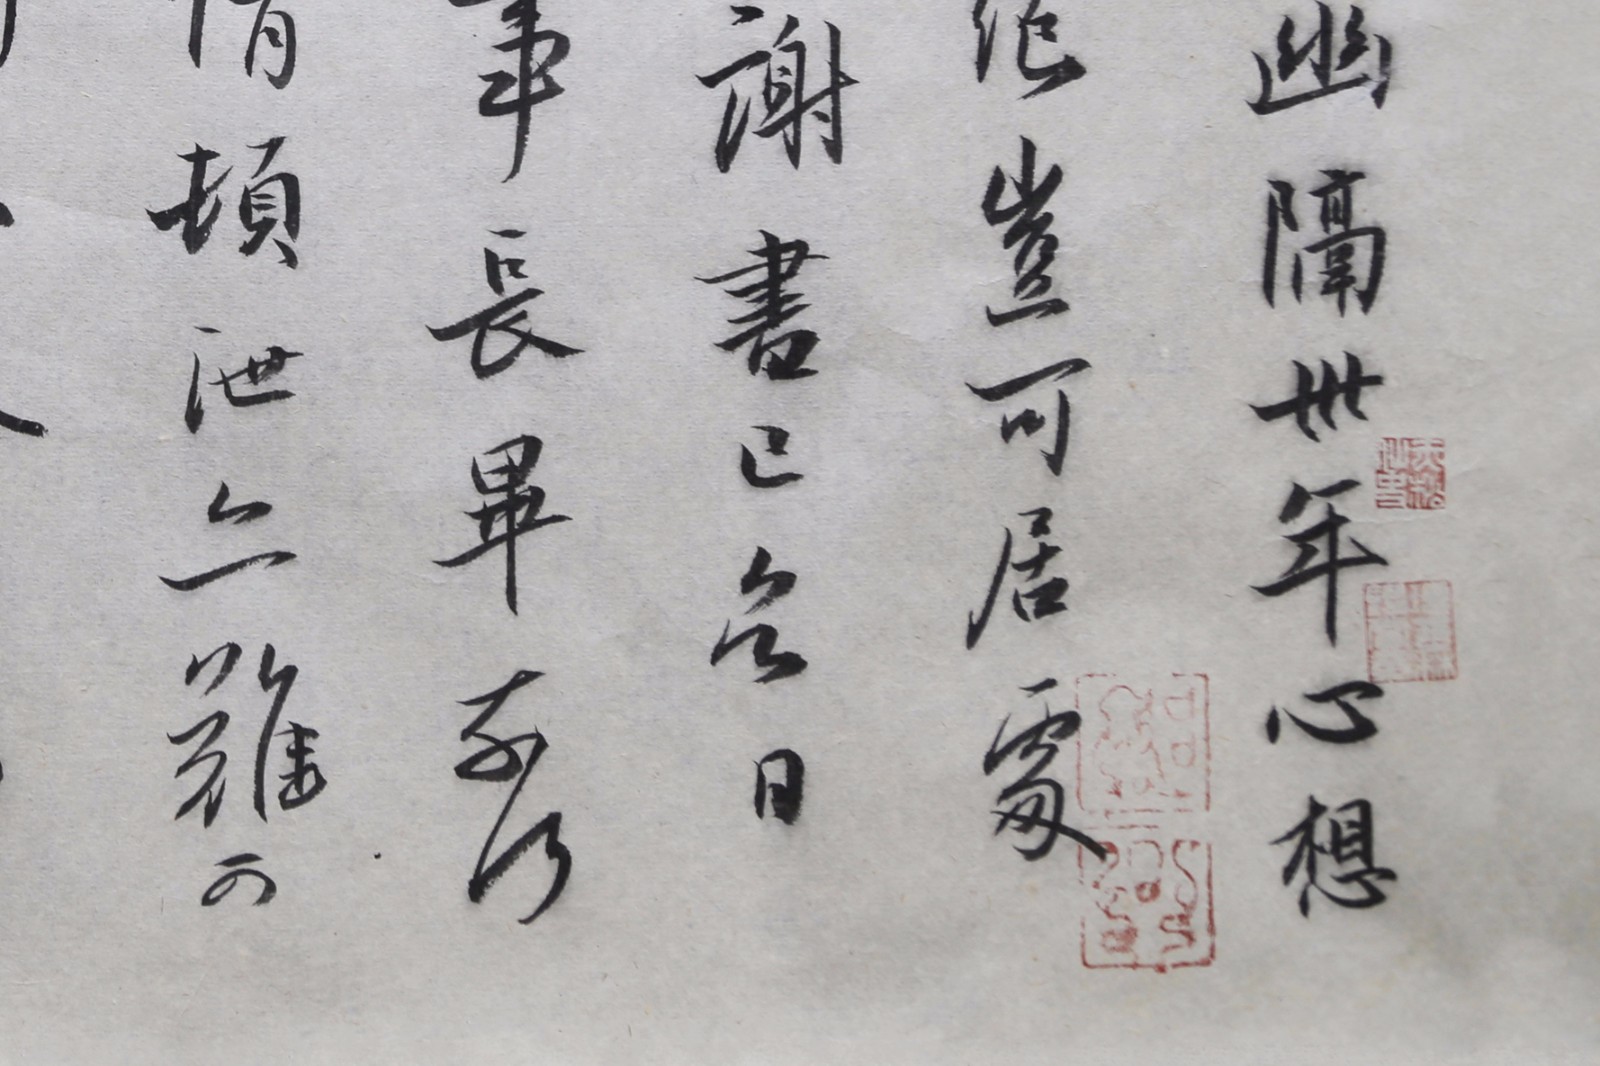 幽隔卅年心想
絕豈可居處
謝書已名日
事長畢前以
情頓泄亦難可